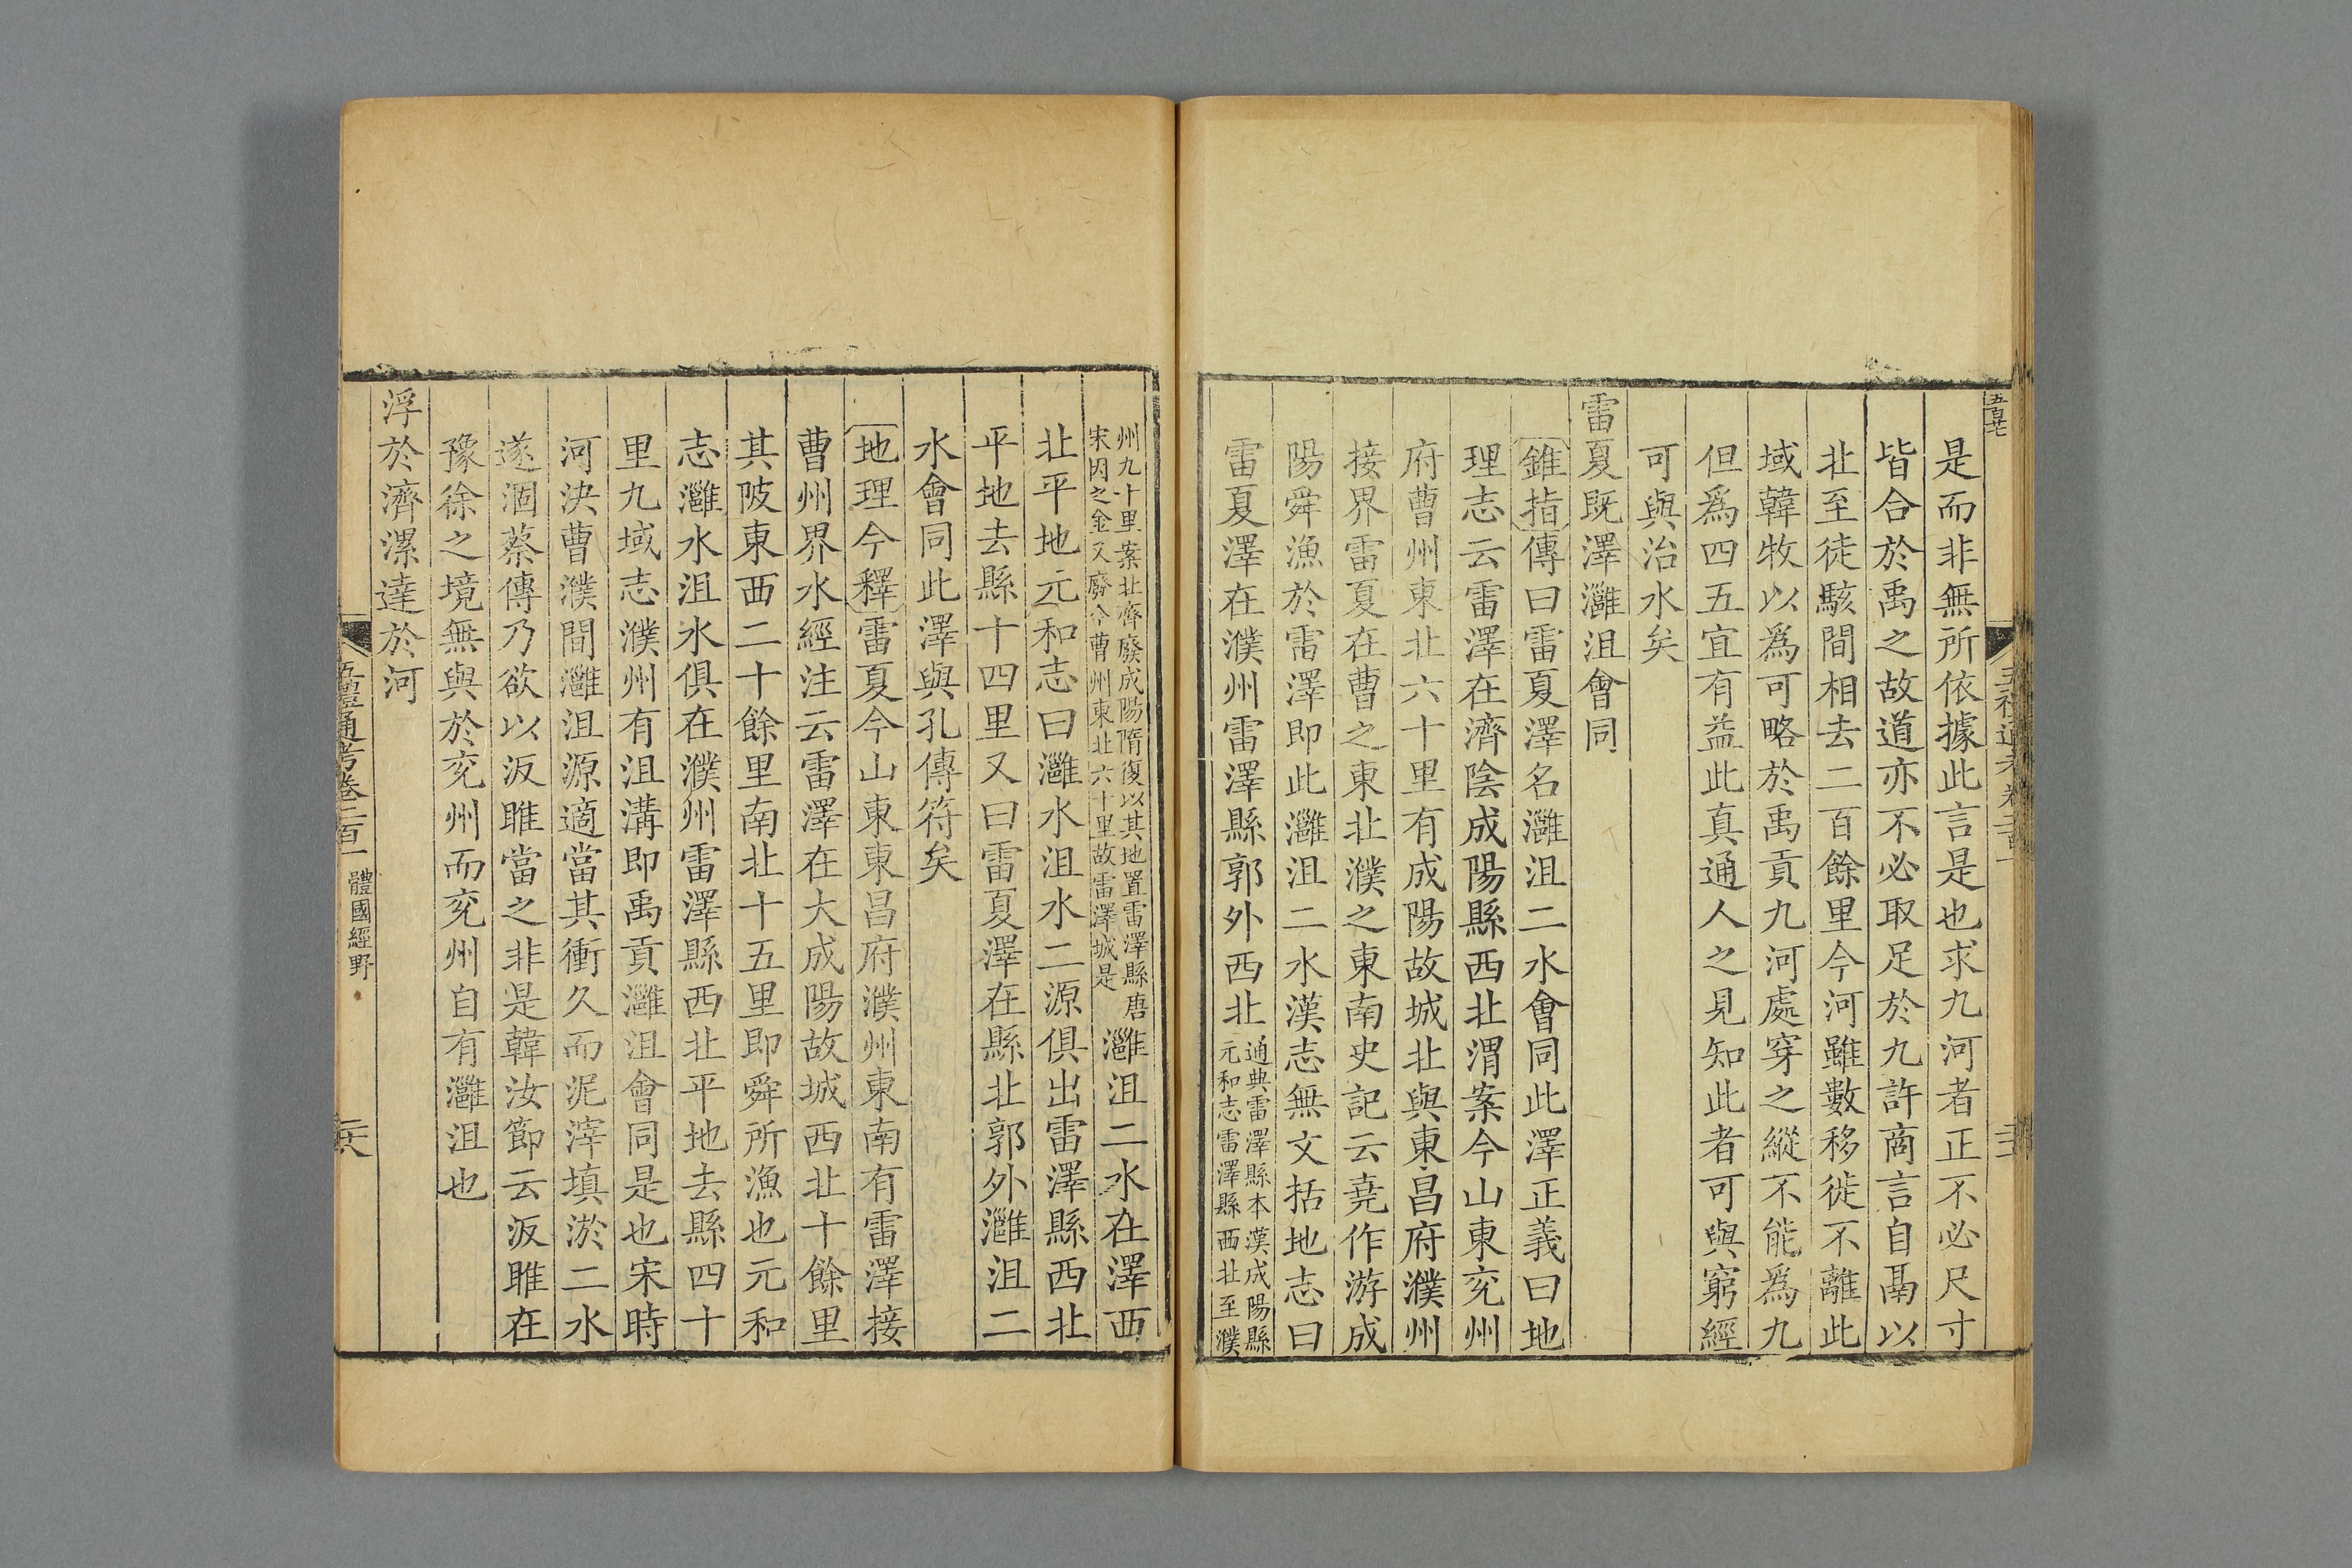 是而非無所依據此言是也求九河者正不必尺寸
皆合於禹之故道亦不必取足於九許商言自鬲以
北至徒駭間相去二百餘里今河雖數移徙不離此
域韓牧以爲可略於禹貢九河處穿之縱不能爲九
但爲四五宜有益此真通人之見知此者可與窮經
可與治水矣
雷夏既澤灉沮會同
錐指傳曰雷夏澤名灉沮二水會同此澤正義曰地
理志云雷澤在濟陰成陽縣西北渭案今山東兖州
府曹州東北六十里有成陽故城北與東昌府濮州
接界雷夏在曹之東北濮之東南史記云堯作游成
陽舜漁於雷澤即此灉沮二水漢志無文括地志曰
雷夏澤在濮州雷澤縣郭外西北通典雷澤縣本漢成陽縣
元和志雷澤縣西北至濮
州九十里案北齊廢成陽隋復以其地置雷澤縣唐
宋因之金又廢今曹州東北六十里故雷澤城是灉沮二水在澤西
北平地元和志曰灉水沮水二源俱出雷澤縣西北
平地去縣十四里又曰雷夏澤在縣北郭外灉沮二
水會同此澤與孔傳符矣
地理今釋雷夏今山東東昌府濮州東南有雷澤接
曹州界水經注云雷澤在大成陽故城西北十餘里
其陂東西二十餘里南北十五里即舜所漁也元和
志灉水沮水俱在濮州雷澤縣西北平地去縣四十
里九域志濮州有沮溝即禹貢灉沮會同是也宋時
河決曹濮間灉沮源適當其衝久而泥滓填淤二水
遂涸蔡傳乃欲以汳睢當之非是韓汝節云汳睢在
豫徐之境無與於兖州而兖州自有灉沮也
浮於濟漯達於河
五禮通考卷二百一 體國經野